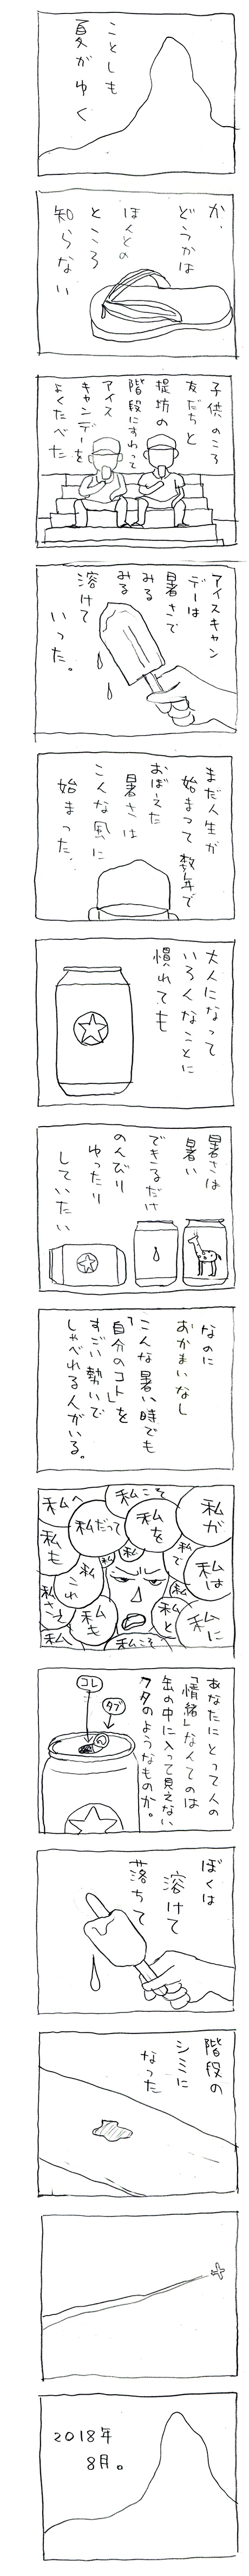 ことしも
夏がゆく
か、
どうかは
ほんとの
ところ
知らない
子供のころ
友だちと
堤坊の
階段にすわって
アイス
キャンデーを
よくたべた
アイスキャン
デーは
暑さで
みる
みる
溶けて
いった。
まだ人生が
始まって数年で
おぼえた
暑さは
こんな風に
始まった。
大人になって
いろんなことに
慣れても
暑さは
暑い
できるだけ
のんびり
ゆったり
していたい
なのに
おかまいなし
こんな暑い時でも
「自分のコト」を
すごい勢いで
しゃべれる人がいる。
私が
私は
私に
私こそ
私を
私で
私
私と
私だって
私
私へ
私も
これ
私も
私さえ
私
私こそ
あなたにとって人の
「情緒」なんてのは
缶の中に入って見えない
フタのようなものか。
コレ
タブ
ぼくは
溶けて
落ちて
階段の
シミに
なった
2018年
8月。